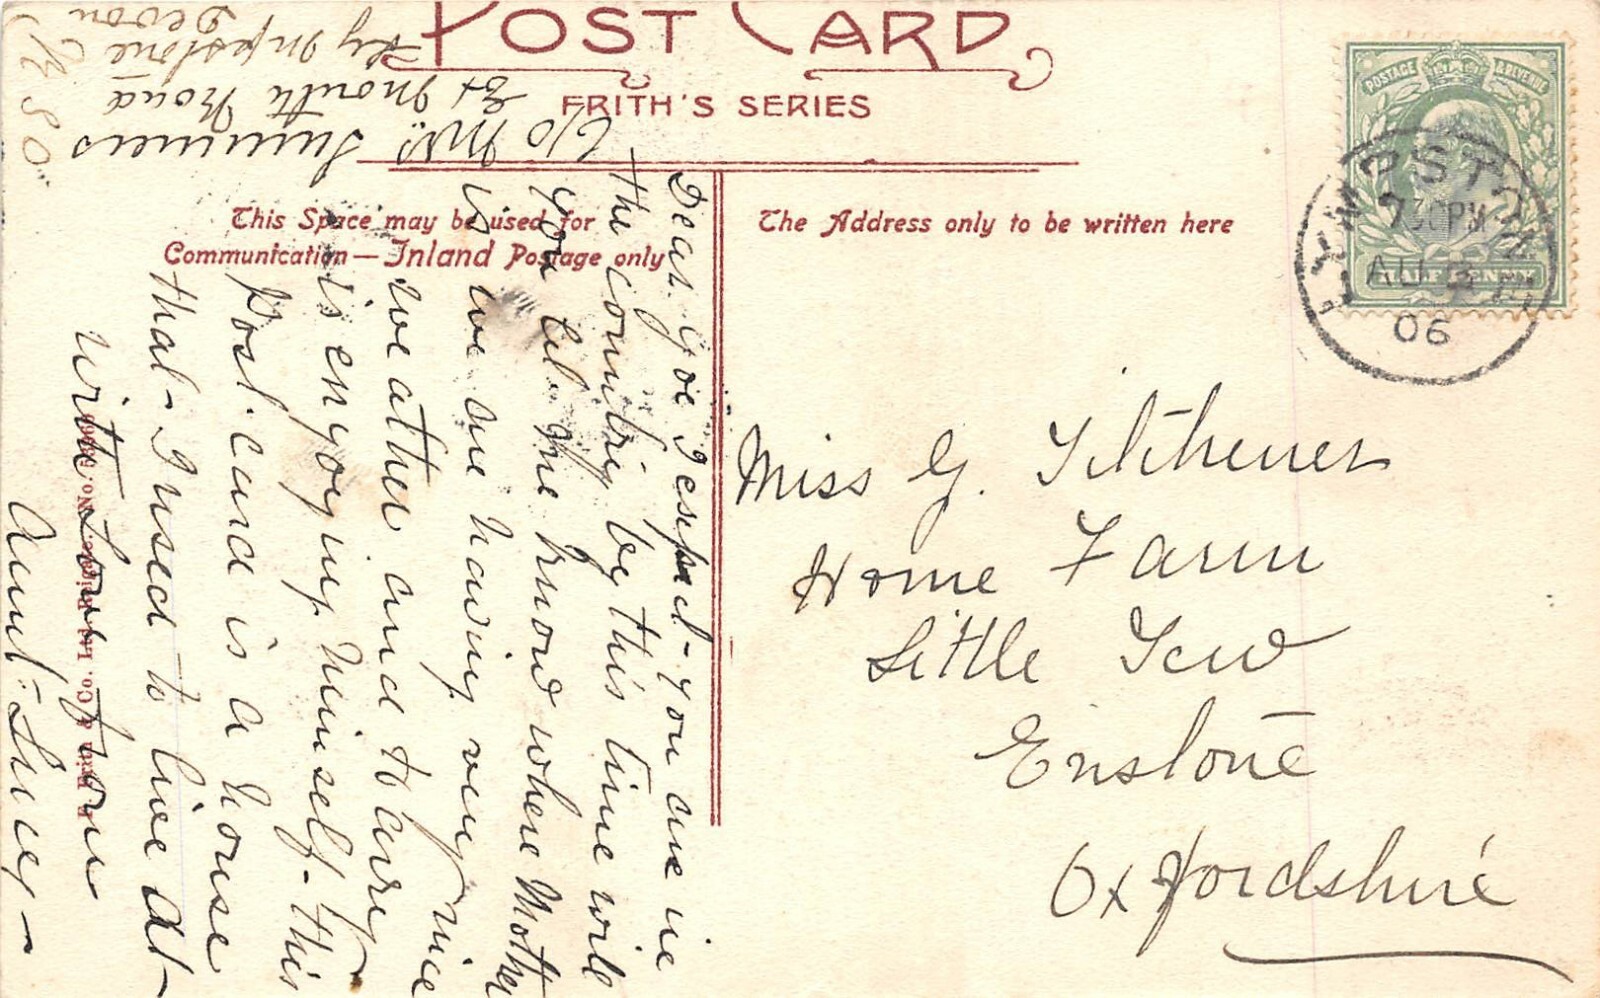 POST CARD
FRITH'S SERIES
This Space may be used for
Communication — Inland Postage only
The Address only to be written here
POSTAGE & REVENUE
HALF PENNY
LYMPSTONE
7 30PM
AU
06
c/o Mrs. Summers
Exmouth Road
Ny Lympstone
Devon
R S O
Dear you are in
the country by this time will
you let me know where Mother
is we are having very nice
weather and
is enjoying himself. this
Post. card is a house
that I used to live at
with Love from
Aunt Lucy
Miss G.
Home Farm
Little Tew
Enstone
Oxfordshire
F. Frith & Co. Ltd. Reigate. No.